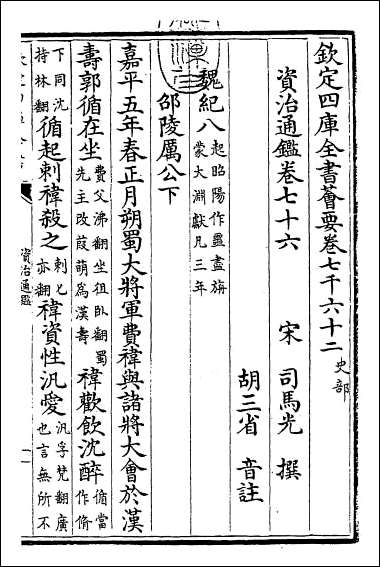 欽定四庫全書薈要卷七千六十二 史部
資治通鑑卷七十六
宋 司馬光 撰
胡三省 音註
魏紀八 起昭陽作噩盡旃蒙大淵獻凡三年
邵陵厲公下
嘉平五年春正月朔蜀大將軍費禕與諸將大會於漢
壽郭循在坐 費父沸翻坐徂臥翻蜀先主改葭萌為漢壽 禕歡飲沈醉 循當作脩
下同沈持林翻 循起刺禕殺之 刺七亦翻 禕資性汎愛 汎孚梵翻廣也言無所不
資治通鑑
一